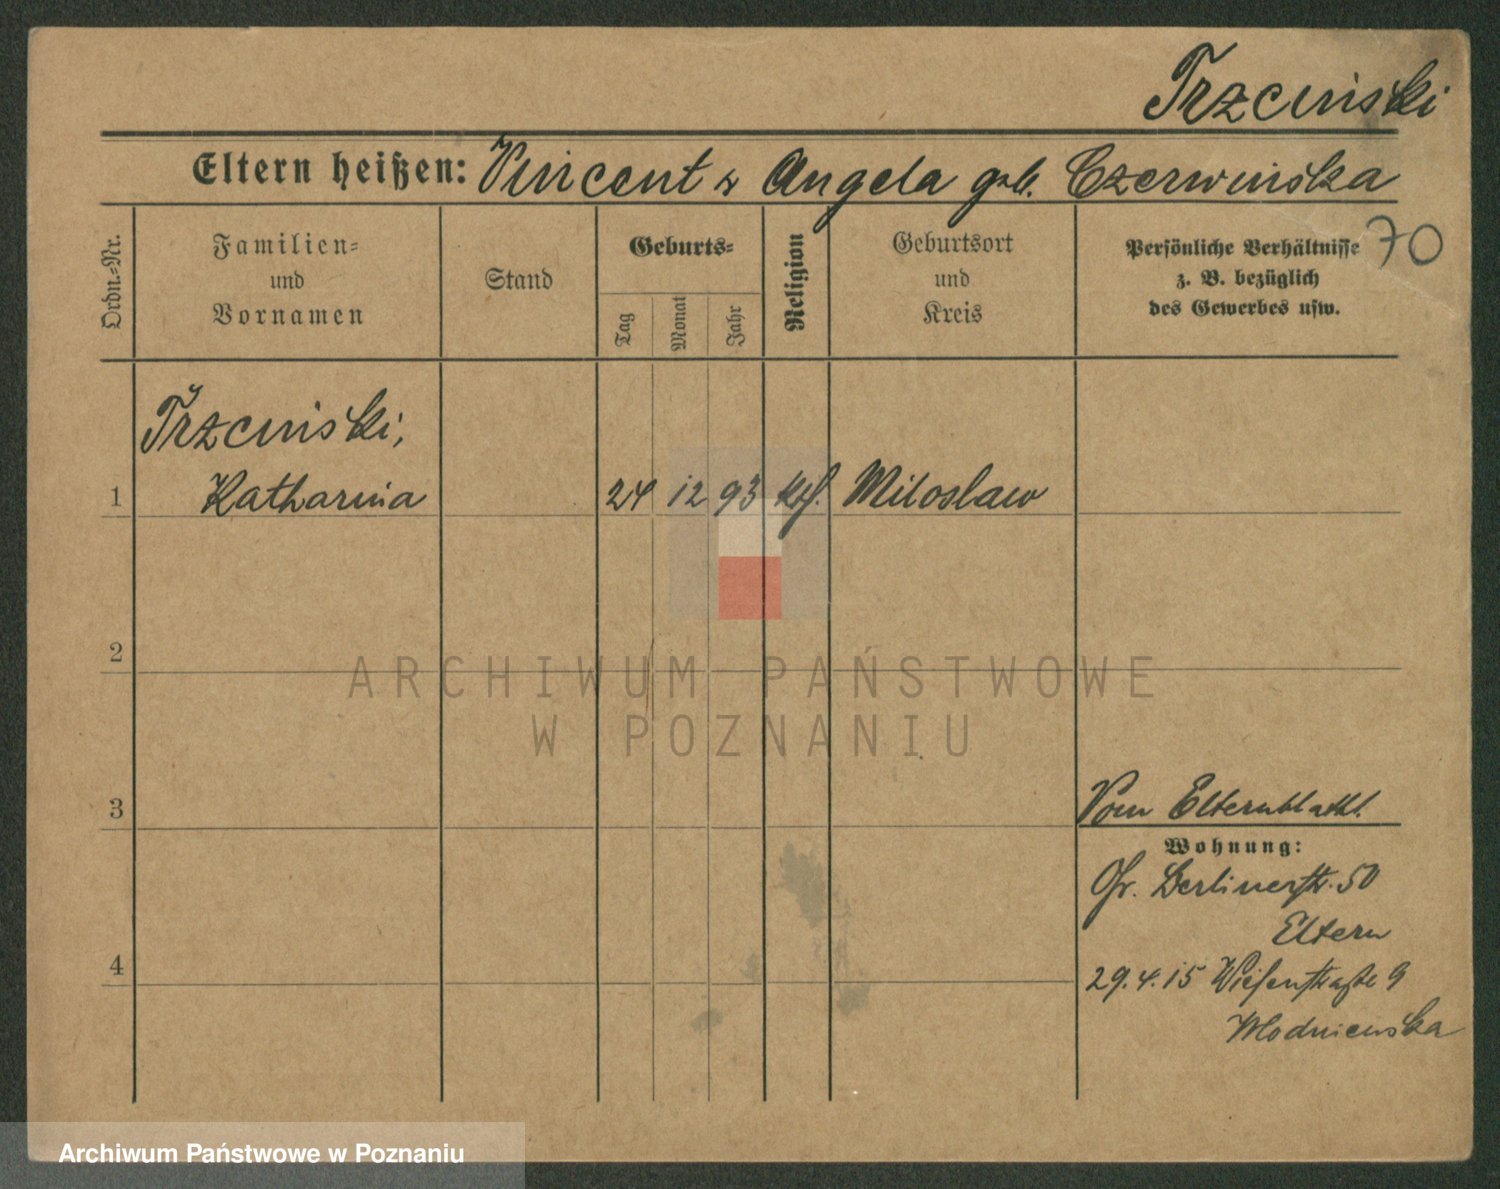 Trzcinski
Eltern heißen: Vincent u Angela geb. Czerwinska
Ordn.=Nr.
Familien=
und
Vornamen
Stand
Geburts=
Tag
Monat
Jahr
Religion
Geburtsort
und
Kreis
Persönliche Verhältnisse
z. B. bezüglich
des Gewerbes usw.
70
Trzcinski,
1 Katharina 24 12 93 kth. Miloslaw
2
ARCHIWUM PAŃSTWOWE
W POZNANIU
3
Vom Elternblatt.
Wohnung:
Gr. Berlinerstr. 50
Eltern
4
29.4.15 Wiesenstraße 9
Wlodniewska
Archiwum Państwowe w Poznaniu